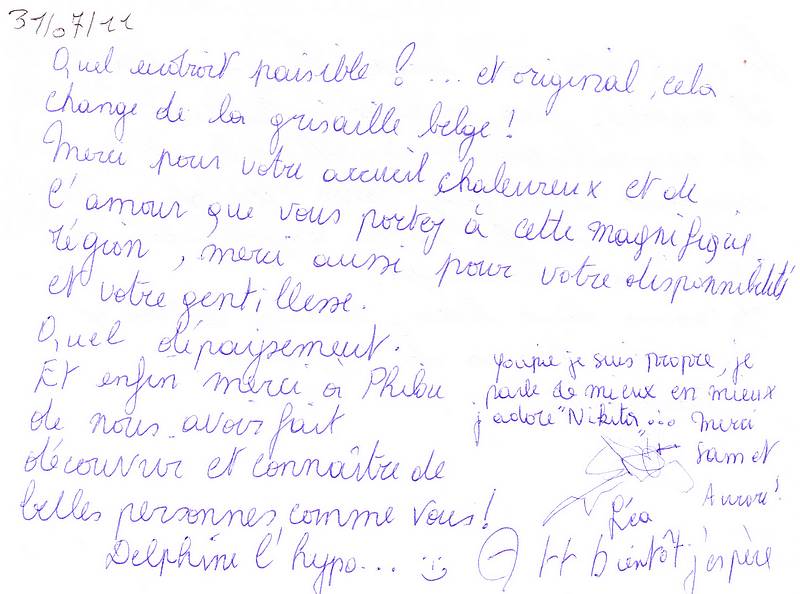 31/07/11
Quel endroit paisible ! ... et original, cela
change de la grisaille belge !
Merci pour votre accueil chaleureux et de
l'amour que vous portez à cette magnifique
région, merci aussi pour votre disponnibilité
et votre gentillesse.
Quel dépaysement.
Et enfin merci à Philou
de nous avoir fait
découvrir et connaître de
belles personnes comme vous !
Delphine l'hypo...
youpie je suis propre, je
parle de mieux en mieux
j'adore "Nikita"... Merci
Sam et
Aurore !
Léa
bientôt j'espère